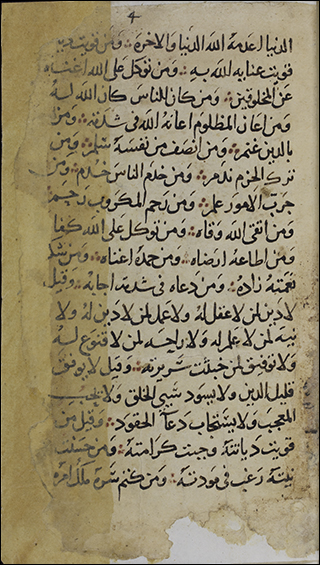 4
الدنيا اعدمه الله الدنيا والاخرة ∴ ومن قويت
قويت عناية الله به ∴ ومن توكل على الله اغناه
عن المخلوقين ∴ ومن كان للناس كان الله له
ومن اعان المظلوم اعانه الله في شدته ∴ ومن
بالدين غنم ∴ ومن انصف من نفسه سلم ∴ ومن
ترك الحزم ندم ∴ ومن خدم الناس خدم ∴ ومن
جرب الامور علم ∴ ومن رحم المكروب رحم
ومن اتقى الله وقاه ∴ ومن توكل على الله كفا
ومن اطاعه ارضاه ∴ ومن حمده اغناه ∴ ومن شكر
نعمته زاده ∴ ومن دعاه في شدته اجابه ∴ وقيل
لا دين لمن لا عقل له ولا عمل لمن لا دين له ولا
نية لمن لا علم له ولا راحه لمن لا قنوع له
ولا توفيق لمن خبثت سريرته ∴ وقيل لا يوفق
قليل الدين ولا يسود سيي الخلق ولا يحب
المعجب ولا يستجاب دعآ الحقود ∴ وقيل من
قويت ديانته وجبت كرامته ∴ ومن حسنت
نيته رغب في مودته ∴ ومن كتم سره ملك امره